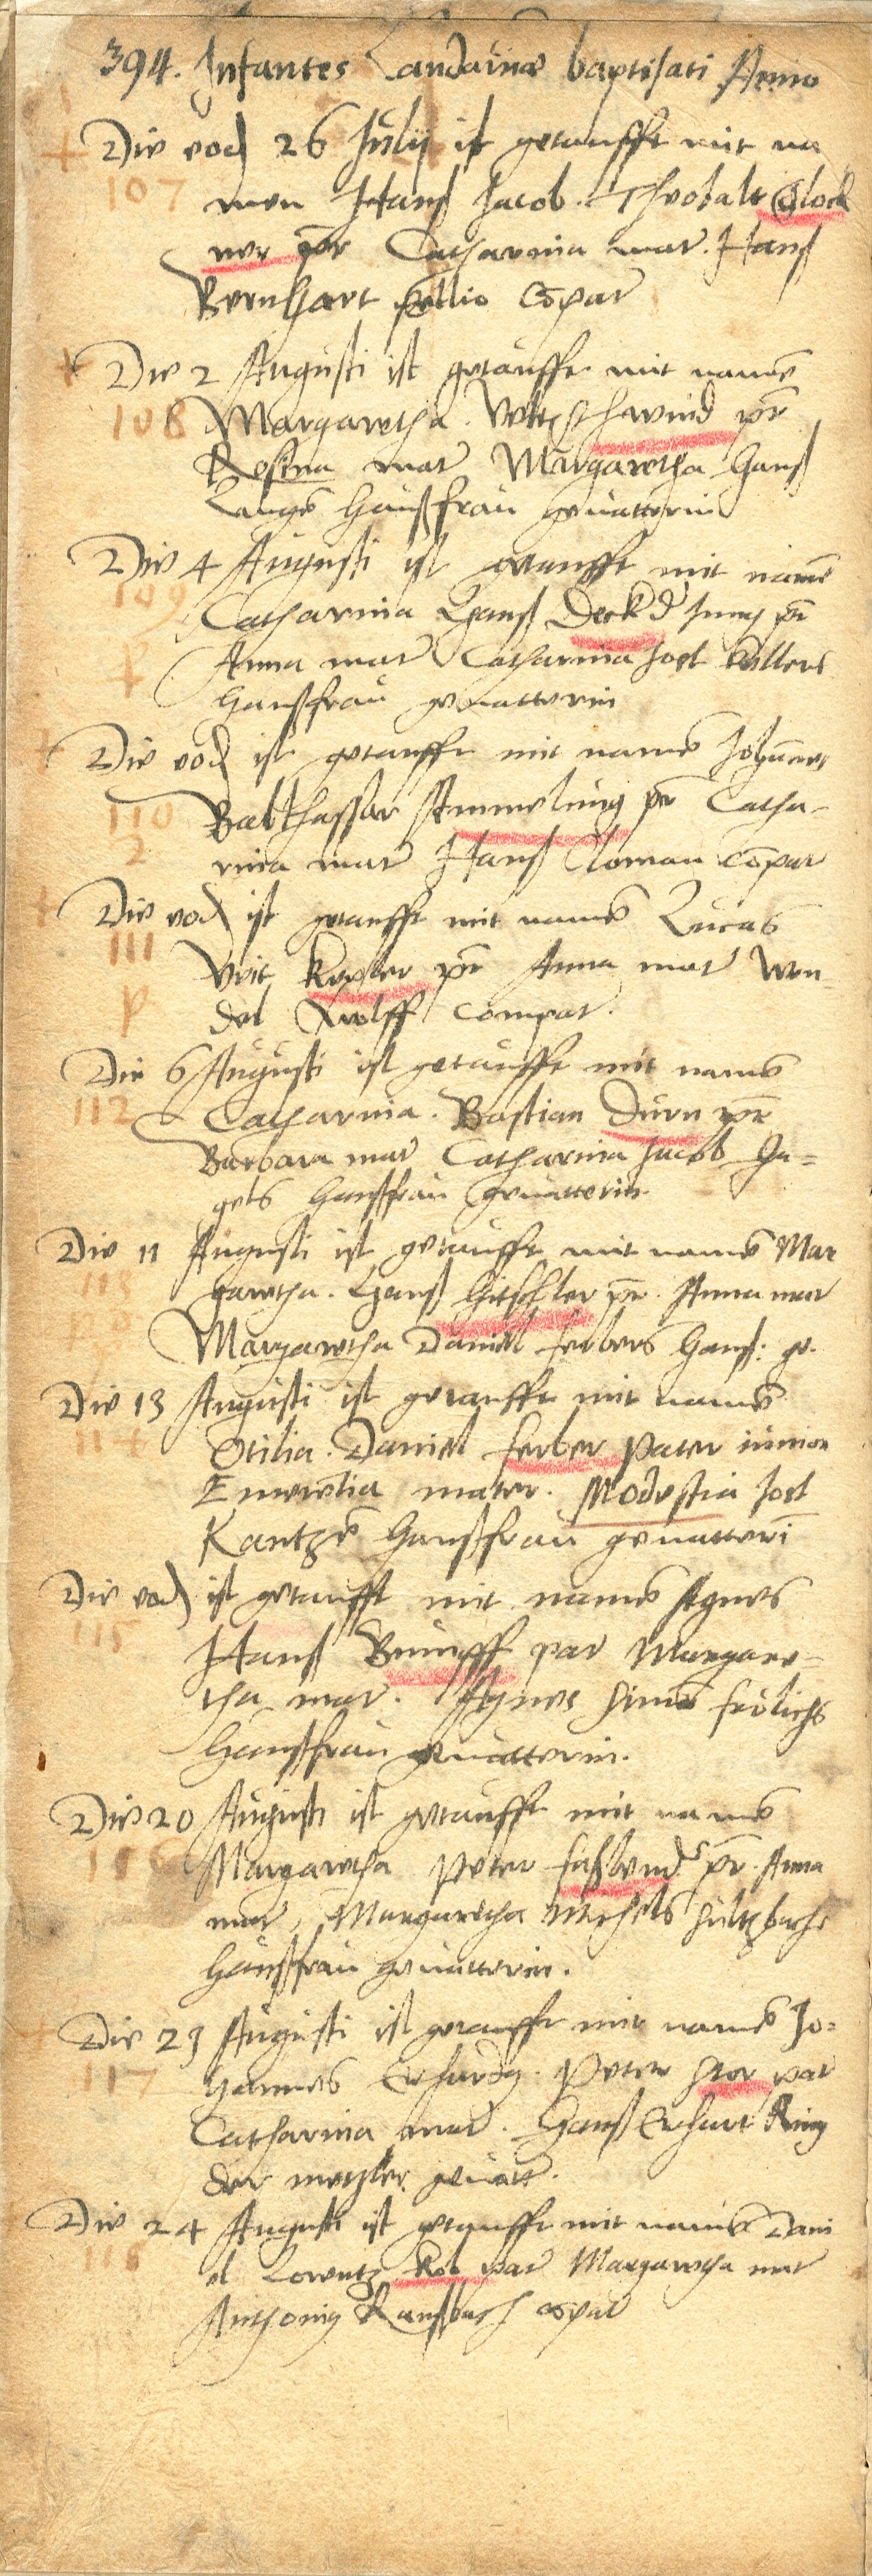 394. Infantes Landauiae baptisati Anno
Die eod 26 Julij ist getaufft mit na
107
men Hanß Jacob. Theobalt Glock
ner pr Catharina mat. Hanß
Bernhart pellio Copat
Die 2 Augusti ist getaufft mit name
108
Margaretha. pr
Rosina mat Margaretha Hanß
Lange haußfrau geuatterin
Die 4 Augusti ist getaufft mit name
109
Catharina Hanß Deck d Jung pr
Anna mat Catharina Jost Kellers
p
haußfrau geuatterin
Die eod ist getaufft mit name Johannes
110
Balthassar Hemmelung pr Catha-
2
rina mat Hanß Cloman Copat
Die eod ist getaufft mit name Lucas
111
Veit Kepler pr Anna mat Wen
p
del Wolff Compat.
Die 6 Augusti ist getaufft mit name
112
Catharina. Bastian Durn pr
Barbara mat Catharina Jacob Ha=
gels haußfrau geuatterin
Die 11 Augusti ist getaufft mit name Mar
113
garetha. Hanß Hitschler pr. Anna mat
Margaretha Daniel ferbers Hauß: ge.
Die 13 Augusti ist getaufft mit name
114
Otilia. Daniel ferber pater iunior
Emerentia mater. Modestia Jost
Kantze haußfrau geuatteri
Die eod ist getaufft mit name Agnes
115
Hanß Bumpff pat Margare-
tha mat. Agnes Simo frölichs
haußfrau geuatterin.
Die 20 Augusti ist getaufft mit name
116
Margaretha Peter pr. Anna
mat, Margaretha Michels Sultzbachs
haußfrau geuatterin.
Die 23 Augusti ist getaufft mit name Jo=
117
hannes Erhardg. Peter Stor pat
Catharina mat. Hanß Erhart King
der metzler geuatt.
Die 24 Augusti ist getaufft mit name Dani
118
el Lorentz Kob pat Margaretha mat
Anthonig Ransbach copat